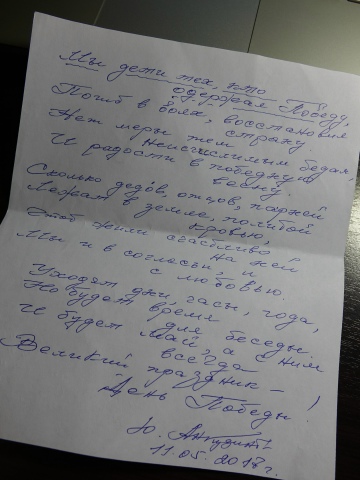 Мы дети тех, кто
одержал Победу,
Погиб в боях, восстановил
страну.
Нет меры тем
неисчислимым бедам,
И радости в победную
весну.
Сколько дедов, отцов, парней
Лежат в земле, политой
кровью,
Чтоб жили счастливо
на ней
Мы и в согласьи, и
с любовью.
Уходят дни, часы, года,
Но будет время
для беседы.
И будет май, а с ним
всегда
Великий праздник –
День Победы!
Ю.
11.05.2017г.